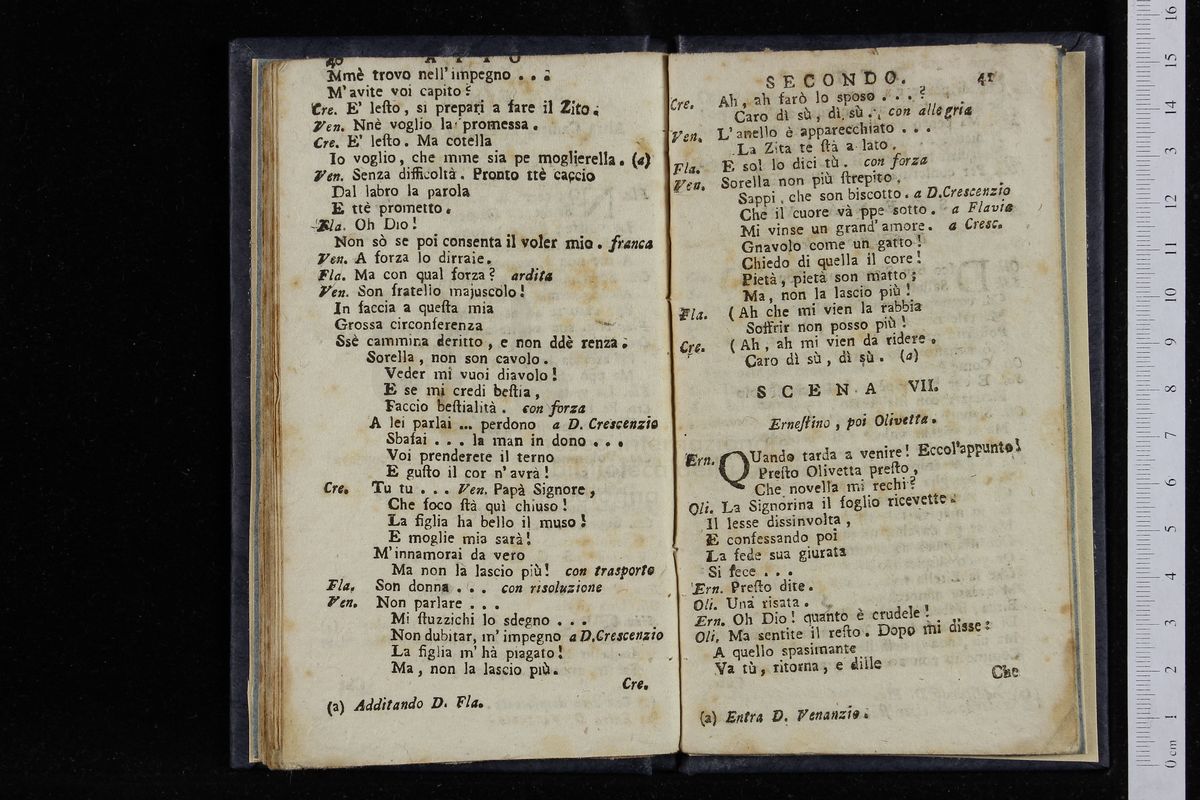 40 ATTO
Mmè trovo nell'impegno . . .
M'avite voi capito?
Cre. E' lesto, si prepari a fare il Zito.
Ven. Nnè voglio la promessa.
Cre. E' lesto. Ma cotella
Io voglio, che mme sia pe moglierella. (a)
Ven. Senza difficoltà. Pronto ttè caccio
Dal labro la parola
E ttè prometto.
Fla. Oh Dio!
Non sò se poi consenta il voler mio. franca
Ven. A forza lo dirraie.
Fla. Ma con qual forza? ardita
Ven. Son fratello majuscolo!
In faccia a questa mia
Grossa circonferenza
Ssè cammina deritto, e non ddè renza.
Sorella, non son cavolo.
Veder mi vuoi diavolo!
E se mi credi bestia,
Faccio bestialità. con forza
A lei parlai ... perdono a D. Crescenzio
Sbafai . . . la man in dono . . .
Voi prenderete il terno
E gusto il cor n'avrà!
Cre. Tu tu . . . Ven. Papà Signore,
Che foco stà quì chiuso!
La figlia ha bello il muso!
E moglie mia sarà!
M'innamorai da vero
Ma non la lascio più! con trasporto
Fla. Son donna . . . con risoluzione
Ven. Non parlare . . .
Mi stuzzichi lo sdegno . . .
Non dubitar, m'impegno a D.Crescenzio
La figlia m'hà piagato!
Ma, non la lascio più.
Cre.
(a) Additando D. Fla.
SECONDO. 41
Cre. Ah, ah farò lo sposo . . . ?
Caro dì sù, dì sù. con allegria
Ven. L'anello è apparecchiato . . .
La Zita te stà a lato.
Fla. E sol lo dici tù. con forza
Ven. Sorella non più strepito.
Sappi, che son biscotto. a D.Crescenzio
Che il cuore và ppe sotto. a Flavia
Mi vinse un grand'amore. a Cresc.
Gnavolo come un gatto!
Chiedo di quella il core!
Pietà, pietà son matto;
Ma, non la lascio più!
Fla. (Ah che mi vien la rabbia
Soffrir non posso più!
Cre. (Ah, ah mi vien da ridere.
Caro dì sù, dì sù. (a)
SCENA VII.
Ernestino, poi Olivetta.
Ern. QUando tarda a venire! Eccol'appunto!
Presto Olivetta presto,
Che novella mi rechi?
Oli. La Signorina il foglio ricevette.
Il lesse dissinvolta,
E confessando poi
La fede sua giurata
Si fece . . .
Ern. Presto dite.
Oli. Una risata.
Ern. Oh Dio! quanto è crudele!
Oli. Ma sentite il resto. Dopo mi disse:
A quello spasimante
Va tù, ritorna, e dille
Che
(a) Entra D. Venanzio.